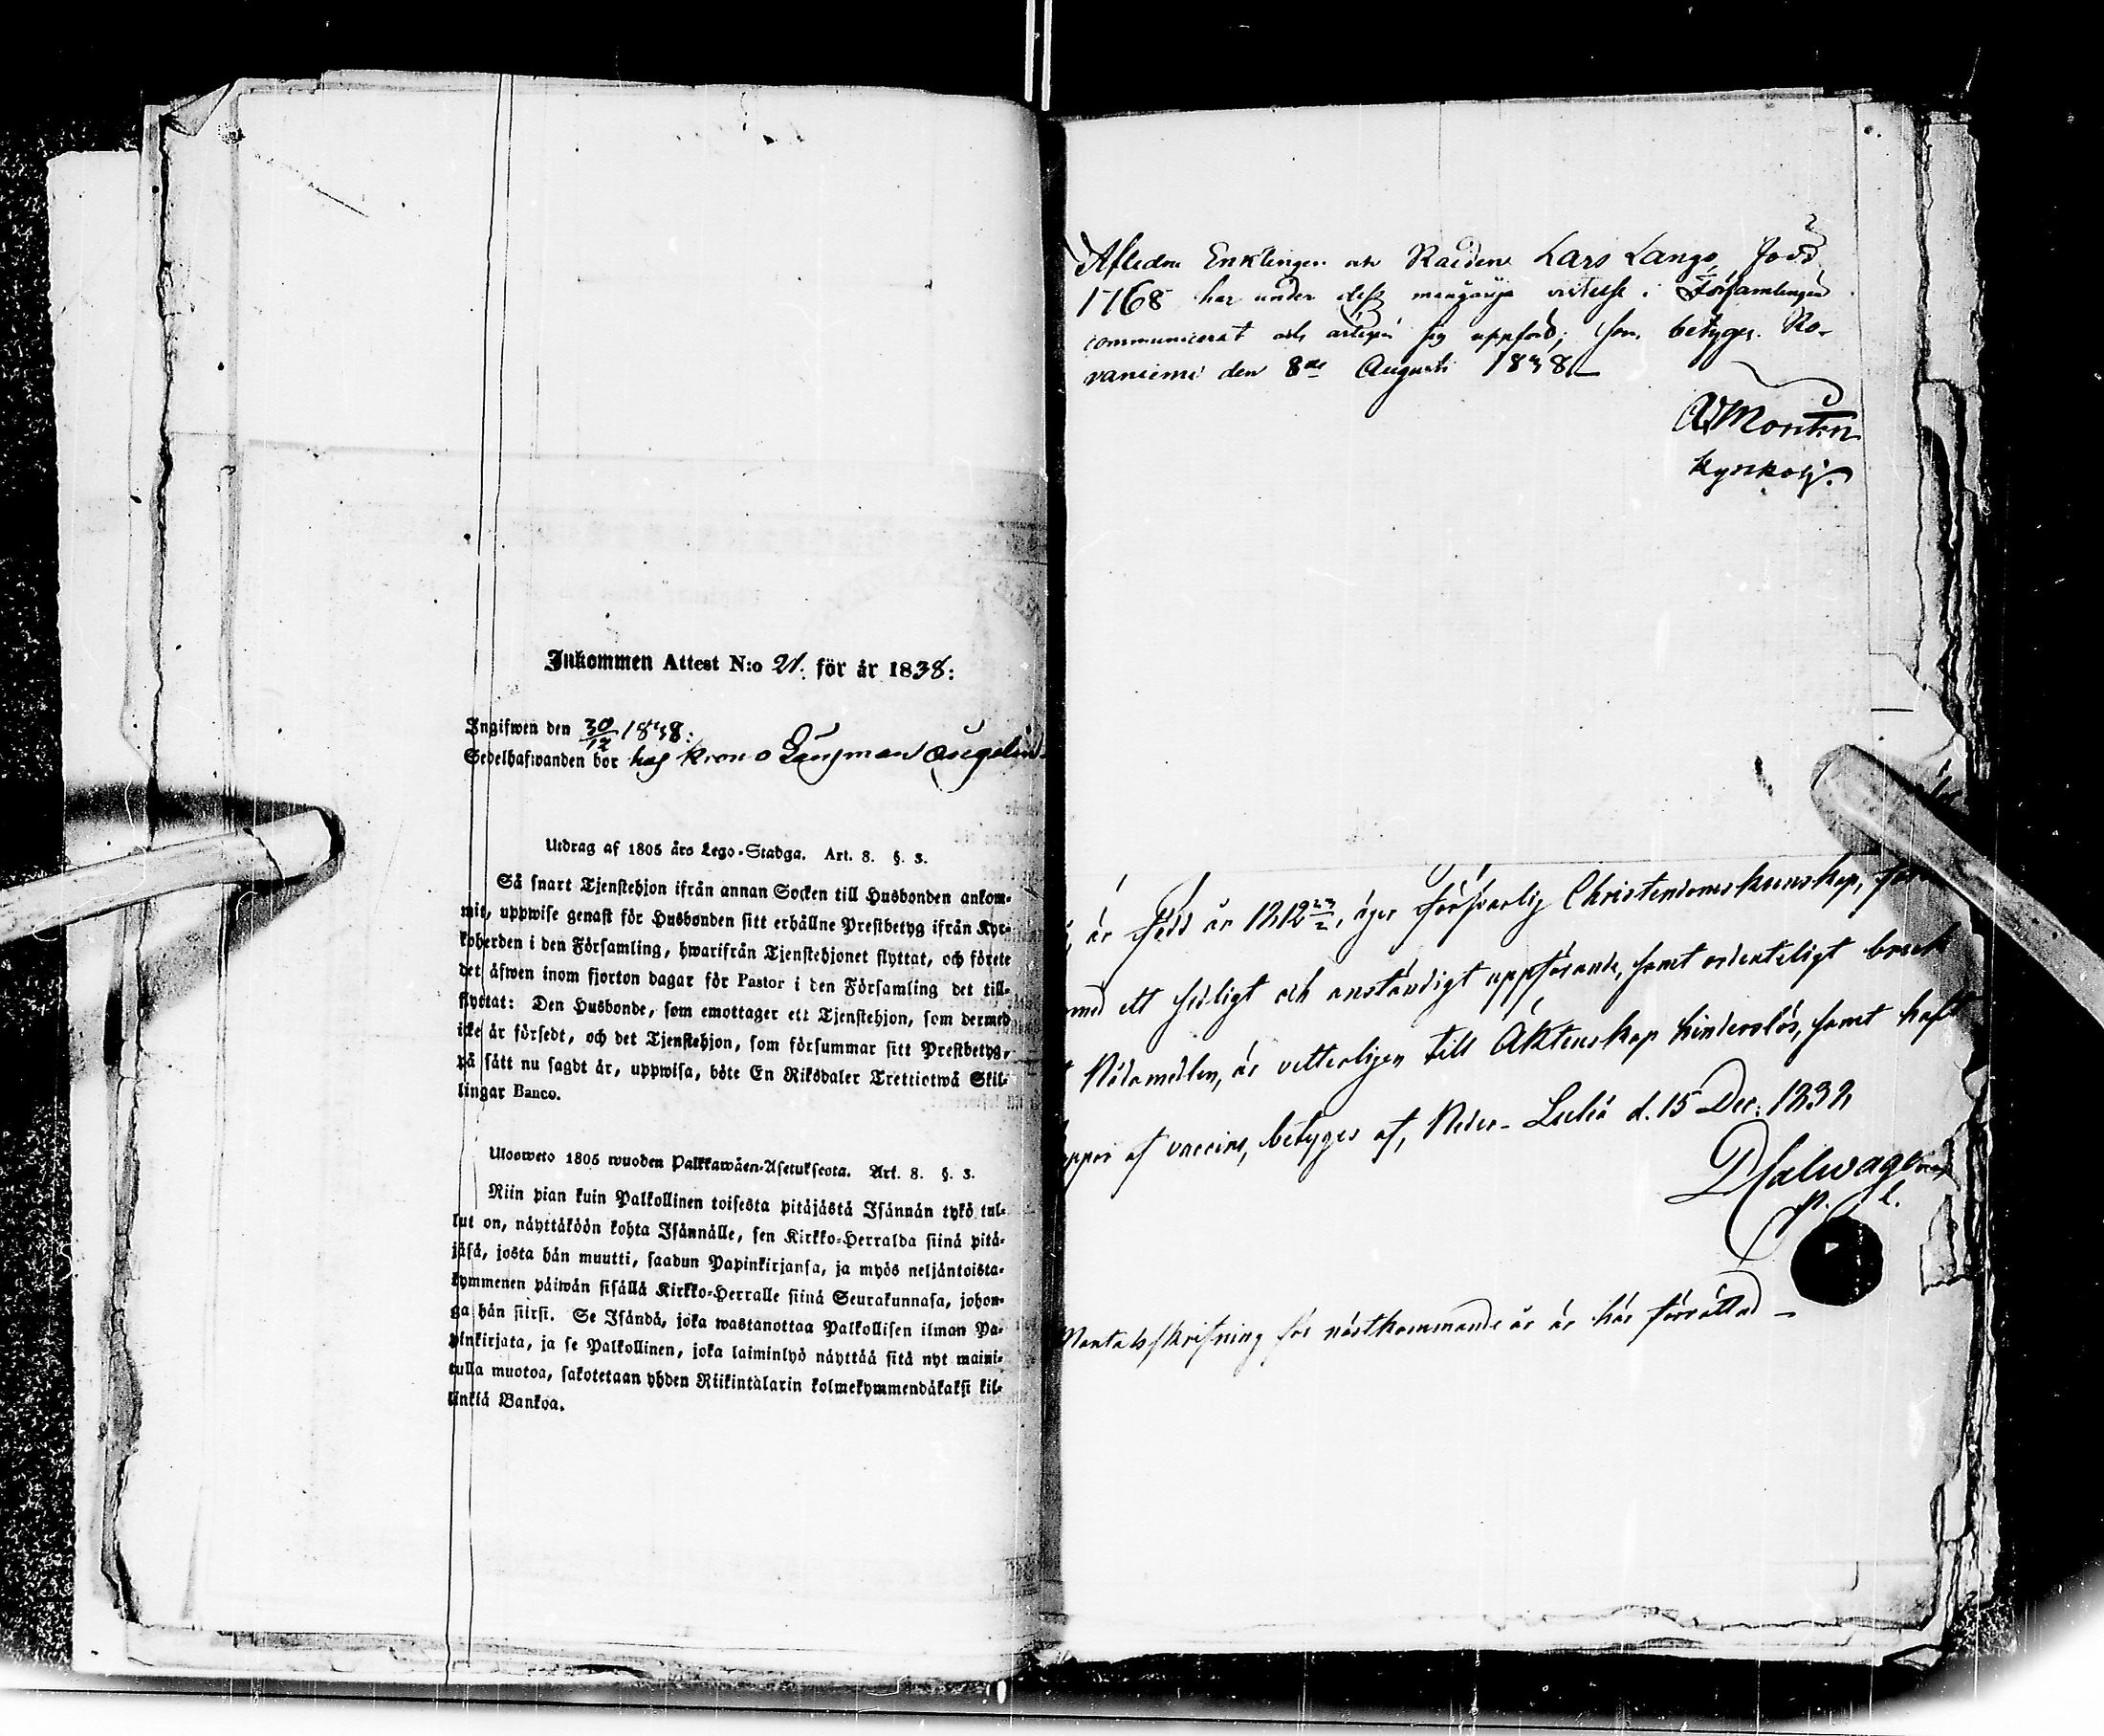 Inkommen Attest N:o 21. för år 1838:
Ingifwen den 30/12 1838:
Sedelhafwanden bor hos krono Länsman Angelin
Utdrag af 1805 års Lego-Stadga. Art. 8. §. 3.
Så snart Tjenstehjon ifrån annan Socken till Husbonden ankom-
mit, uppwise genast för Husbonden sitt erhållne Prestbetyg ifrån Kyr-
koherden i den Församling, hwarifrån Tjenstehjonet flyttat, och förete
det äfwen inom fjorton dagar för Pastor i den Församling det till-
flyttat: Den Husbonde, som emottager ett Tjenstehjon, som dermed
icke är försedt, och det Tjenstehjon, som försummar sitt Prestbetyg,
på sätt nu sagdt är, uppwisa, böte En Riksdaler Trettiotwå Skil-
lingar Banco.
Ulosweto 1805 wuoden Palkkawäen-Asetuksesta. Art. 8. §. 3.
Niin pian kuin Palkollinen toisesta pitäjästä Isännän tykö tul-
lut on, näyttäköön kohta Isännälle, sen Kirkko-Herralda siinä pitä-
jäsä, josta hän muutti, saadun Papinkirjansa, ja myös neljäntoista-
kymmenen päiwän sisällä Kirkko-Herralle siinä Seurakunnasa, johon-
ga hän siirsi. Se Isändä, joka wastanottaa Palkollisen ilman Pa-
pinkirjata, ja se Palkollinen, joka laiminlyö näyttää sitä nyt maini-
tulla muotoa, sakotetaan yhden Riikintalarin kolmekymmendäkaksi kil-
linkiä Bankoa.
Afledne Enklingen och Raidens Lars Lango, född
1768 har under dess mångåriga vistelse i Församlingen
communicerat och ärligen sig uppförd; som betygas. Ro-
vaniemi den 8de Augusti 1838
Montin
Kyrkoh.
är född år 1812, äger försvarlig Christendomskunskap,
med ett sedligt och anständigt uppförande, samt ordenteligt
Nådamedlen, är vetterligen till Äktenskap hinderslös, samt haft
af vaccine, betyges af, Neder-Luleå d. 15 Dec. 1832
p. l.
Mantalsskrifning för nästkommande år är här förrättad –